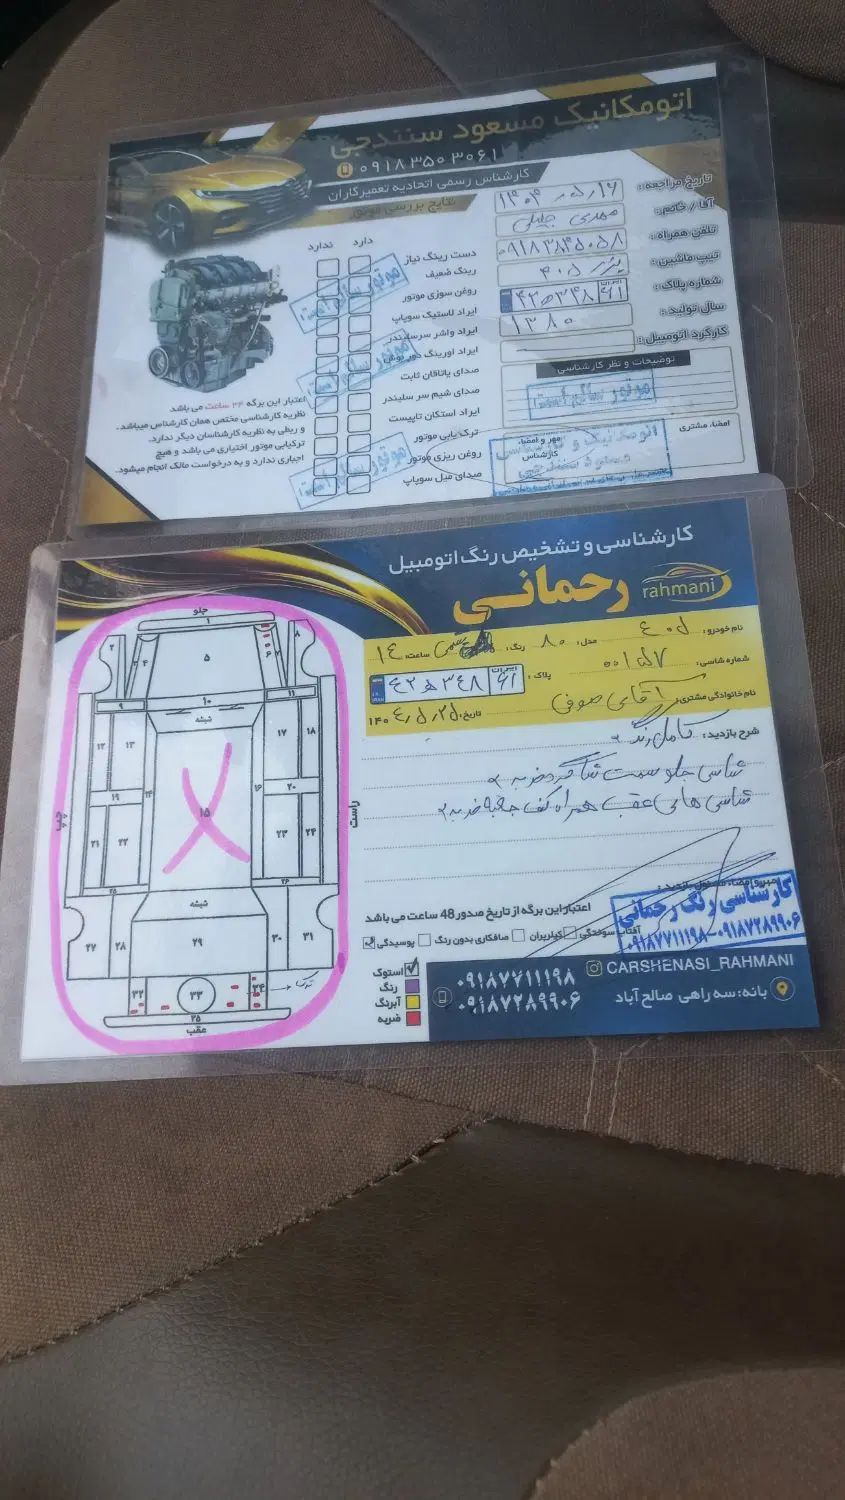 اتومکانیک مسعود سنندجی
۰۹۱۸۳۵۰۳۰۶۱
کارشناس رسمی اتحادیه تعمیرکاران
نتایج بررسی موتور
تاریخ مراجعه:
آقا / خانم: مهدی جلیلی
تلفن همراه:
تیپ ماشین: پژو ۴۰۵
شماره پلاک: ۴۲ ه ۳۴۸ ایران ۶۱
سال تولید: ۱۳۸۰
کارکرد اتومبیل:
توضیحات و نظر کارشناسی
موتور سالم است
امضاء مشتری
مهر و امضاء کارشناس
اتومکانیک و کارشناسی
مسعود سنندجی
دارد
ندارد
دست رینگ نیاز
رینگ ضعیف
روغن سوزی موتور
ایراد لاستیک سوپاپ
ایراد واشر سرسیلندر
ایراد اورینگ دور بوش
صدای یاتاقان ثابت
صدای شیم سر سیلندر
ایراد استکان تایپیت
ترک یابی موتور
روغن ریزی موتور
صدای میل سوپاپ
موتور سالم است
موتور سالم است
موتور سالم است
اعتبار این برگه ۲۴ ساعت می باشد
نظریه کارشناسی مختص همان کارشناس میباشد.
و ربطی به نظریه کارشناسان دیگر ندارد.
ترکیابی موتور اختیاری می باشد و هیچ
اجباری ندارد و به درخواست مالک انجام میشود.
کارشناسی و تشخیص رنگ اتومبیل
رحمانی
rahmani
نام خودرو: ۴۰۵ مدل: ۸۰ رنگ: ساعت: ۱۴
شماره شاسی: ۰۰۱۵۷ پلاک: ۴۲ ه ۳۴۸ ایران ۶۱
نام خانوادگی مشتری: آقای صوفی تاریخ: ۱۴۰۴,۵,۲۵
شرح بازدید: کامل رنگ
شاسی جلو سمت شاگرد ضربه
شاسی های عقب همراه کف جعبه ضربه
مهر و امضاء مسئول بازدید:
کارشناسی رنگ رحمانی
۰۹۱۸۷۷۱۱۱۹۸-۰۹۱۸۷۲۸۹۹۰۶
اعتبار این برگه از تاریخ صدور 48 ساعت می باشد
آفتاب سوختگی
لیزبران
صافکاری بدون رنگ
پوسیدگی
استوک
رنگ
آبرنگ
ضربه
۰۹۱۸۷۷۱۱۱۹۸
۰۹۱۸۷۲۸۹۹۰۶
CARSHENASI_RAHMANI
بانه: سه راهی صالح آباد
جلو
۱
۲
۴
۵
۶
۷
۸
۹
۱۰
۱۱
شیشه
۱۲
۱۳
۱۴
۱۵
۱۶
۱۷
۱۸
۱۹
۲۰
۲۱
۲۲
۲۳
۲۴
۲۵
۲۶
چپ
راست
شیشه
۲۷
۲۸
۲۹
۳۰
۳۱
۳۲
۳۳
۳۴
ترک
۳۵
عقب